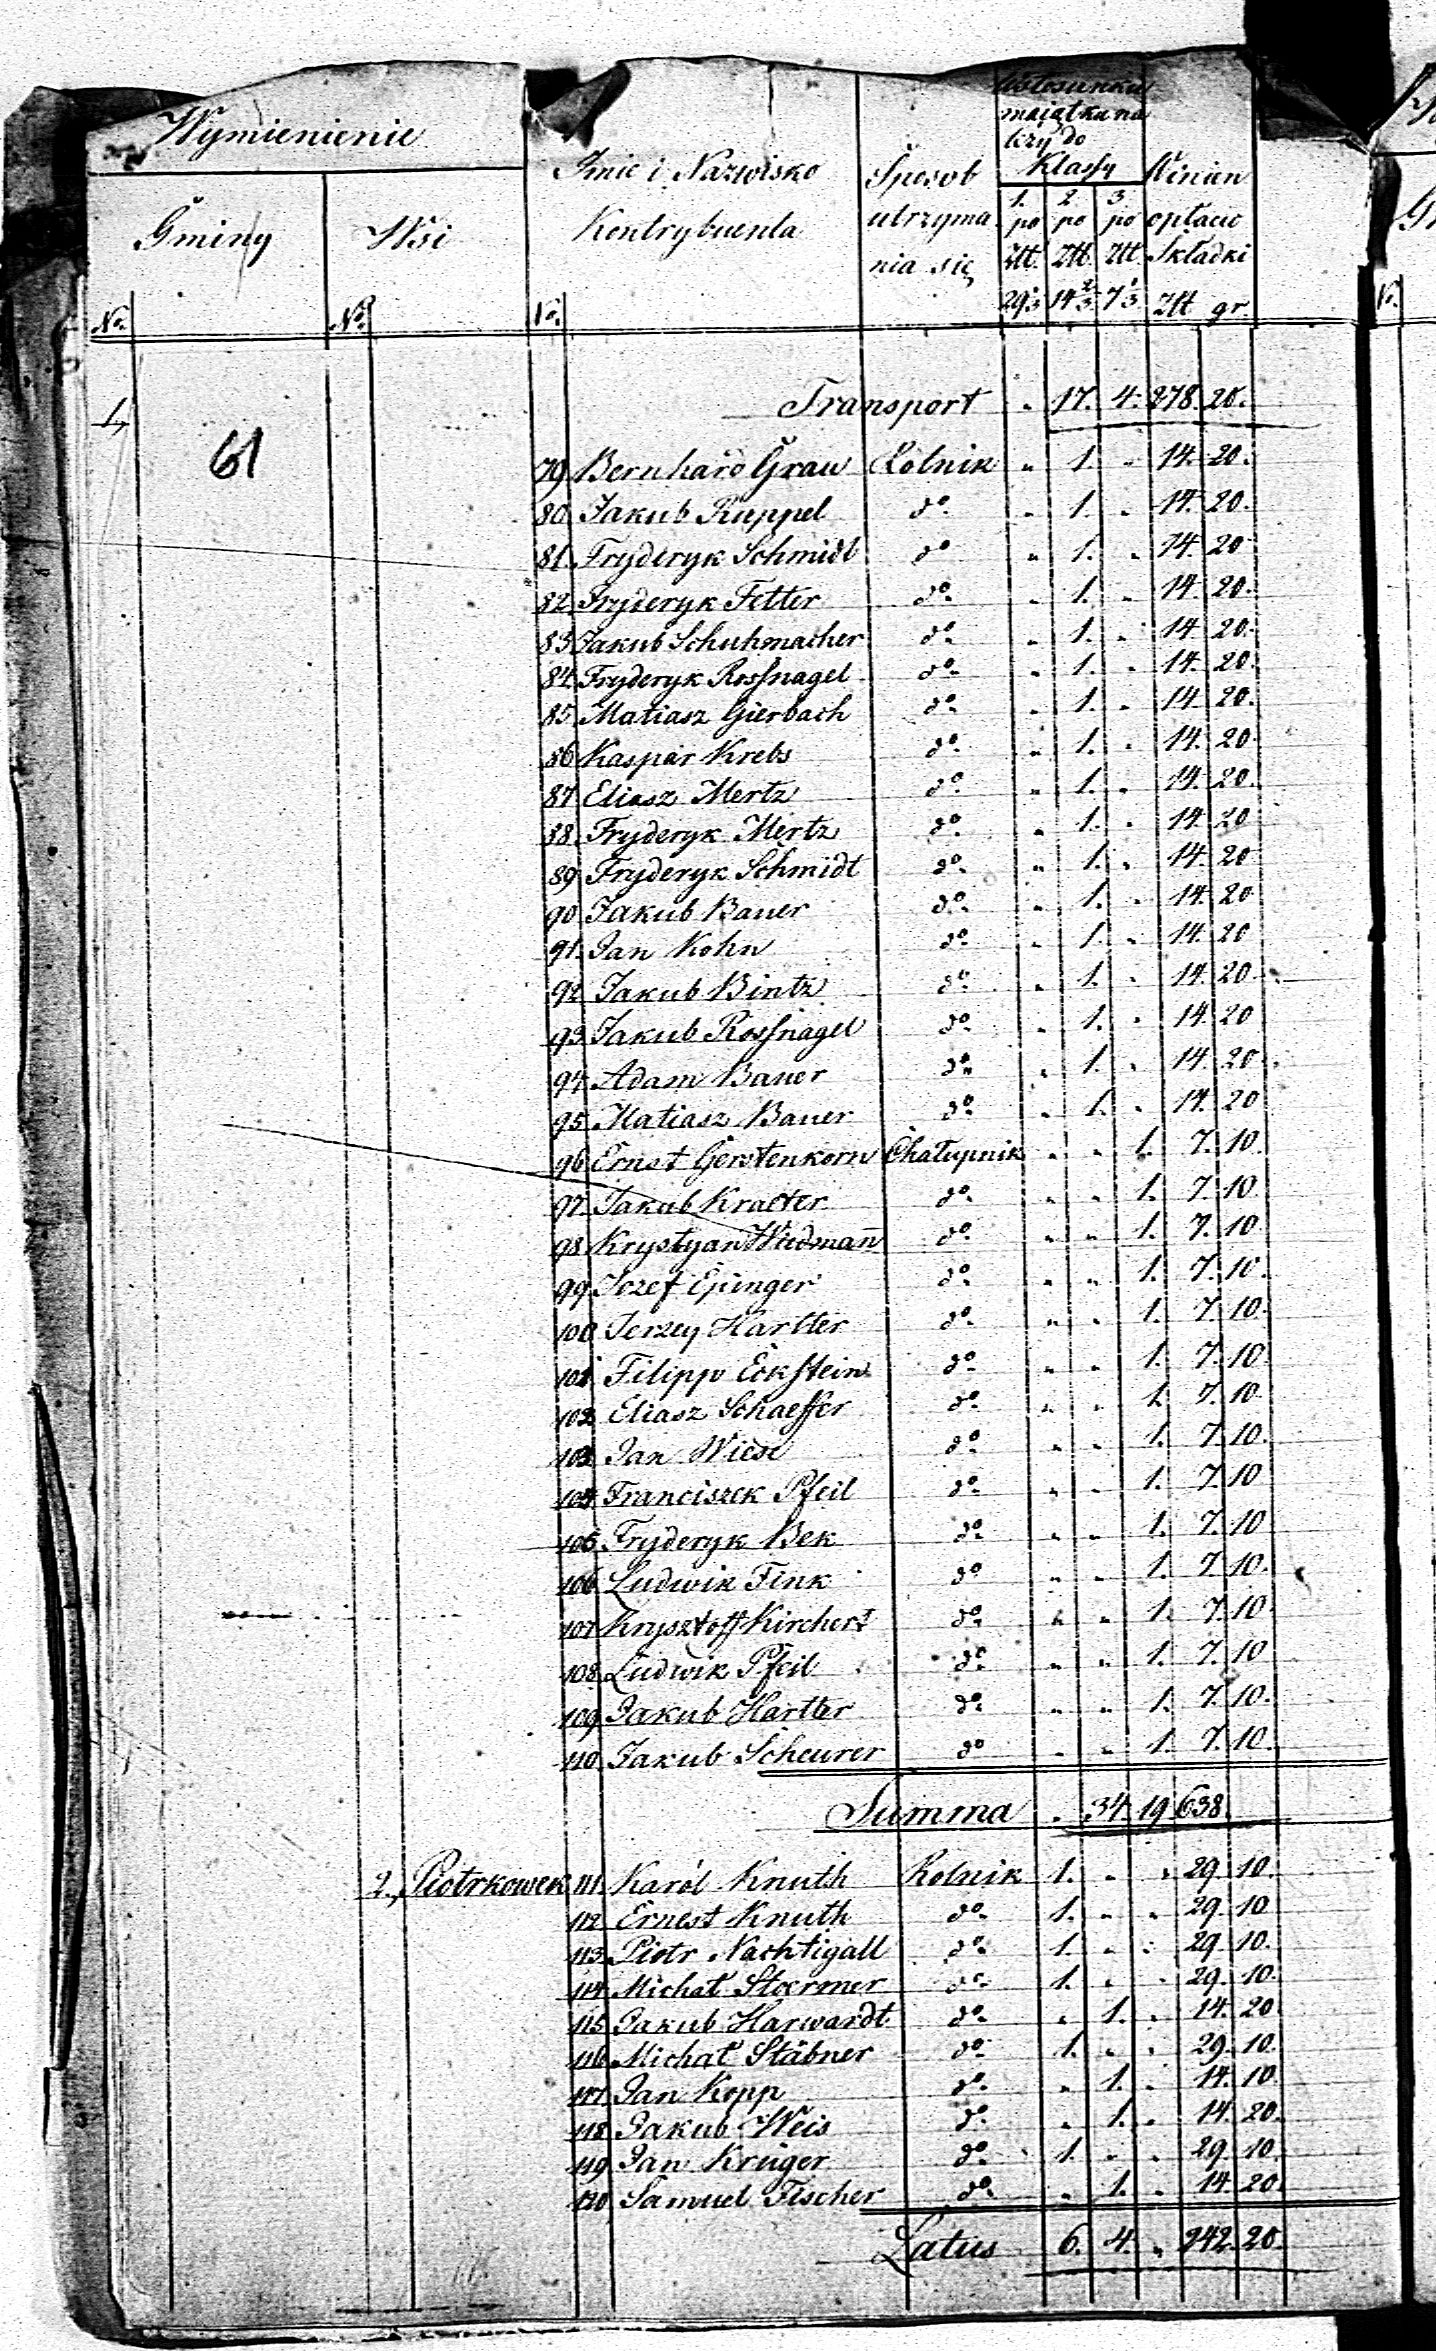 Wymienienie
Gminy
Wsi
Imie i Nazwisko
Kontrybuenta
Sposob
utrzyma
nia się
Wstosunku
maiątku na
leży do
Klassy
1. 2. 3.
po po po
Złt. Złt. Złt.
29 1/3 14 2/3 7 1/3
Winien
opłacic
Składki
Złt gr.
No. No. No. No.
Transport " 17. 4. 278. 20.
1,
61
79 Bernhard Grau Rolnik " 1. " 14. 20.
80 Jakub Ruppel do " 1. " 14. 20.
81. Fryderyk Schmidt do " 1. " 14. 20
82. Fryderyk Fetter do " 1. " 14. 20.
83 Jakub Schuhmacher do " 1. " 14 20.
84 Fryderyk Rossnagel do " 1. " 14. 20.
85 Matiasz Gierbach do " 1. " 14 20.
86 Kaspar Krebs do " 1. " 14. 20.
87 Eliasz Mertz do " 1. " 14. 20.
88. Fryderyk Mertz do " 1. " 14. 20
89 Fryderyk Schmidt do " 1. " 14. 20
90 Jakub Bauer do " 1. " 14. 20
91. Jan Kohn do " 1. " 14. 20
92 Jakub Bintz do " 1. " 14. 20.
93 Jakub Rossnagel do " 1. " 14. 20
94 Adam Bauer do " 1. " 14. 20.
95 Matiasz Bauer do " 1. " 14. 20
96 Ernst Gerstenkorn Chałupnik " " 1. 7. 10.
97. Jakub Kraeter do " " 1. 7. 10
98 Krystyan Wiedmann do " " 1. 7. 10.
99 Jozef Epinger do " " 1. 7. 10.
100 Jerzey Hartter do " " 1. 7. 10.
101 Filipp Eckstein do " " 1. 7. 10.
102 Eliasz Schaeffer do " " 1. 7. 10.
103 Jan Wiese do " " 1. 7. 10.
104 Franciszek Pfeil do " " 1. 7. 10
105 Fryderyk Bek do " " 1. 7. 10
106 Ludwik Fink do " " 1. 7 10.
107 Krysztoff Kirchert do " " 1. 7. 10.
108 Ludwik Pfeil do " " 1. 7. 10
109 Jakub Hartter do " " 1. 7. 10.
110. Jakub Scheurer do " " 1. 7. 10.
Summa " 34. 19. 638.
2., Piotrkowek 111. Karól Knuth Rolnik 1. " " 29. 10.
112 Ernest Knuth do 1. " " 29. 10
113. Piotr Nachtigall do 1. " " 29. 10.
114 Michał Stoermer do 1. " " 29. 10.
115 Jakub Harwardt do " 1. " 14. 20
116 Michał Stäbner do 1. " " 29. 10.
117 Jan Kopp do " 1. " 14. 10.
118 Jakub Weis do " 1. " 14. 20.
119 Jan Krüger do 1. " " 29. 10.
120 Samuel Fischer do " 1. " 14. 20.
Latus 6. 4. " 242. 20.